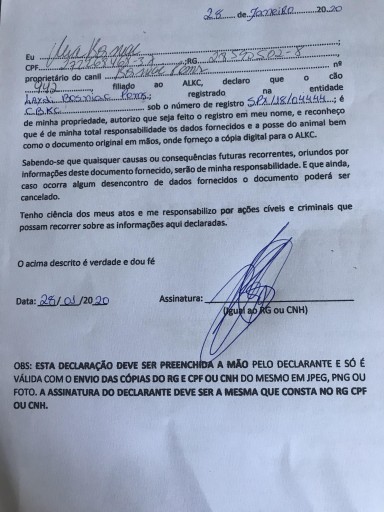 28 de Janeiro 20 20
Eu
CPF :RG
proprietário do canil nº
942, filiado ao ALKC, declaro que o cão
registrado na entidade
C.B.K.C. sob o número de registro SPA/18/04444; é
de minha propriedade, autorizo que seja feito o registro em meu nome, e reconheço
que é de minha total responsabilidade os dados fornecidos e a posse do animal bem
como o documento original em mãos, onde forneço a cópia digital para o ALKC.
Sabendo-se que quaisquer causas ou consequências futuras recorrentes, oriundos por
informações deste documento fornecido, serão de minha responsabilidade. E que ainda,
caso ocorra algum desencontro de dados fornecidos o documento poderá ser
cancelado.
Tenho ciência dos meus atos e me responsabilizo por ações cíveis e criminais que
possam recorrer sobre as informações aqui declaradas.
O acima descrito é verdade e dou fé
Data: 28/01/2020 Assinatura:
(Igual ao RG ou CNH)
OBS: ESTA DECLARAÇÃO DEVE SER PREENCHIDA A MÃO PELO DECLARANTE E SÓ É
VÁLIDA COM O ENVIO DAS CÓPIAS DO RG E CPF OU CNH DO MESMO EM JPEG, PNG OU
FOTO. A ASSINATURA DO DECLARANTE DEVE SER A MESMA QUE CONSTA NO RG CPF
OU CNH.